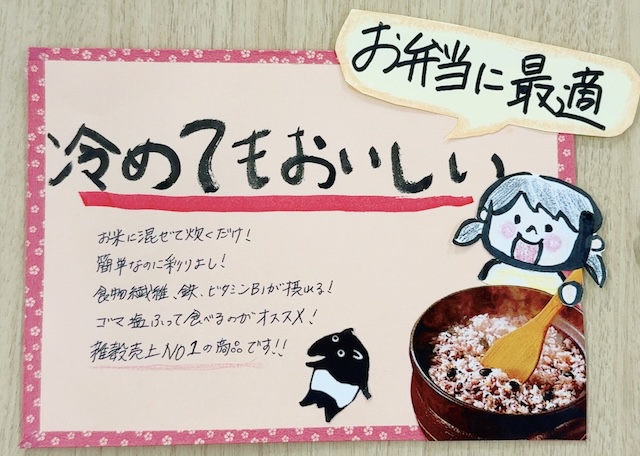 お弁当に最適
冷めてもおいしい
お米に混ぜて炊くだけ!
簡単なのに彩りよし!
食物繊維、鉄、ビタミンB1が摂れる!
ゴマ塩ふって食べるのがオススメ!
雑穀売上NO1の商品です!!